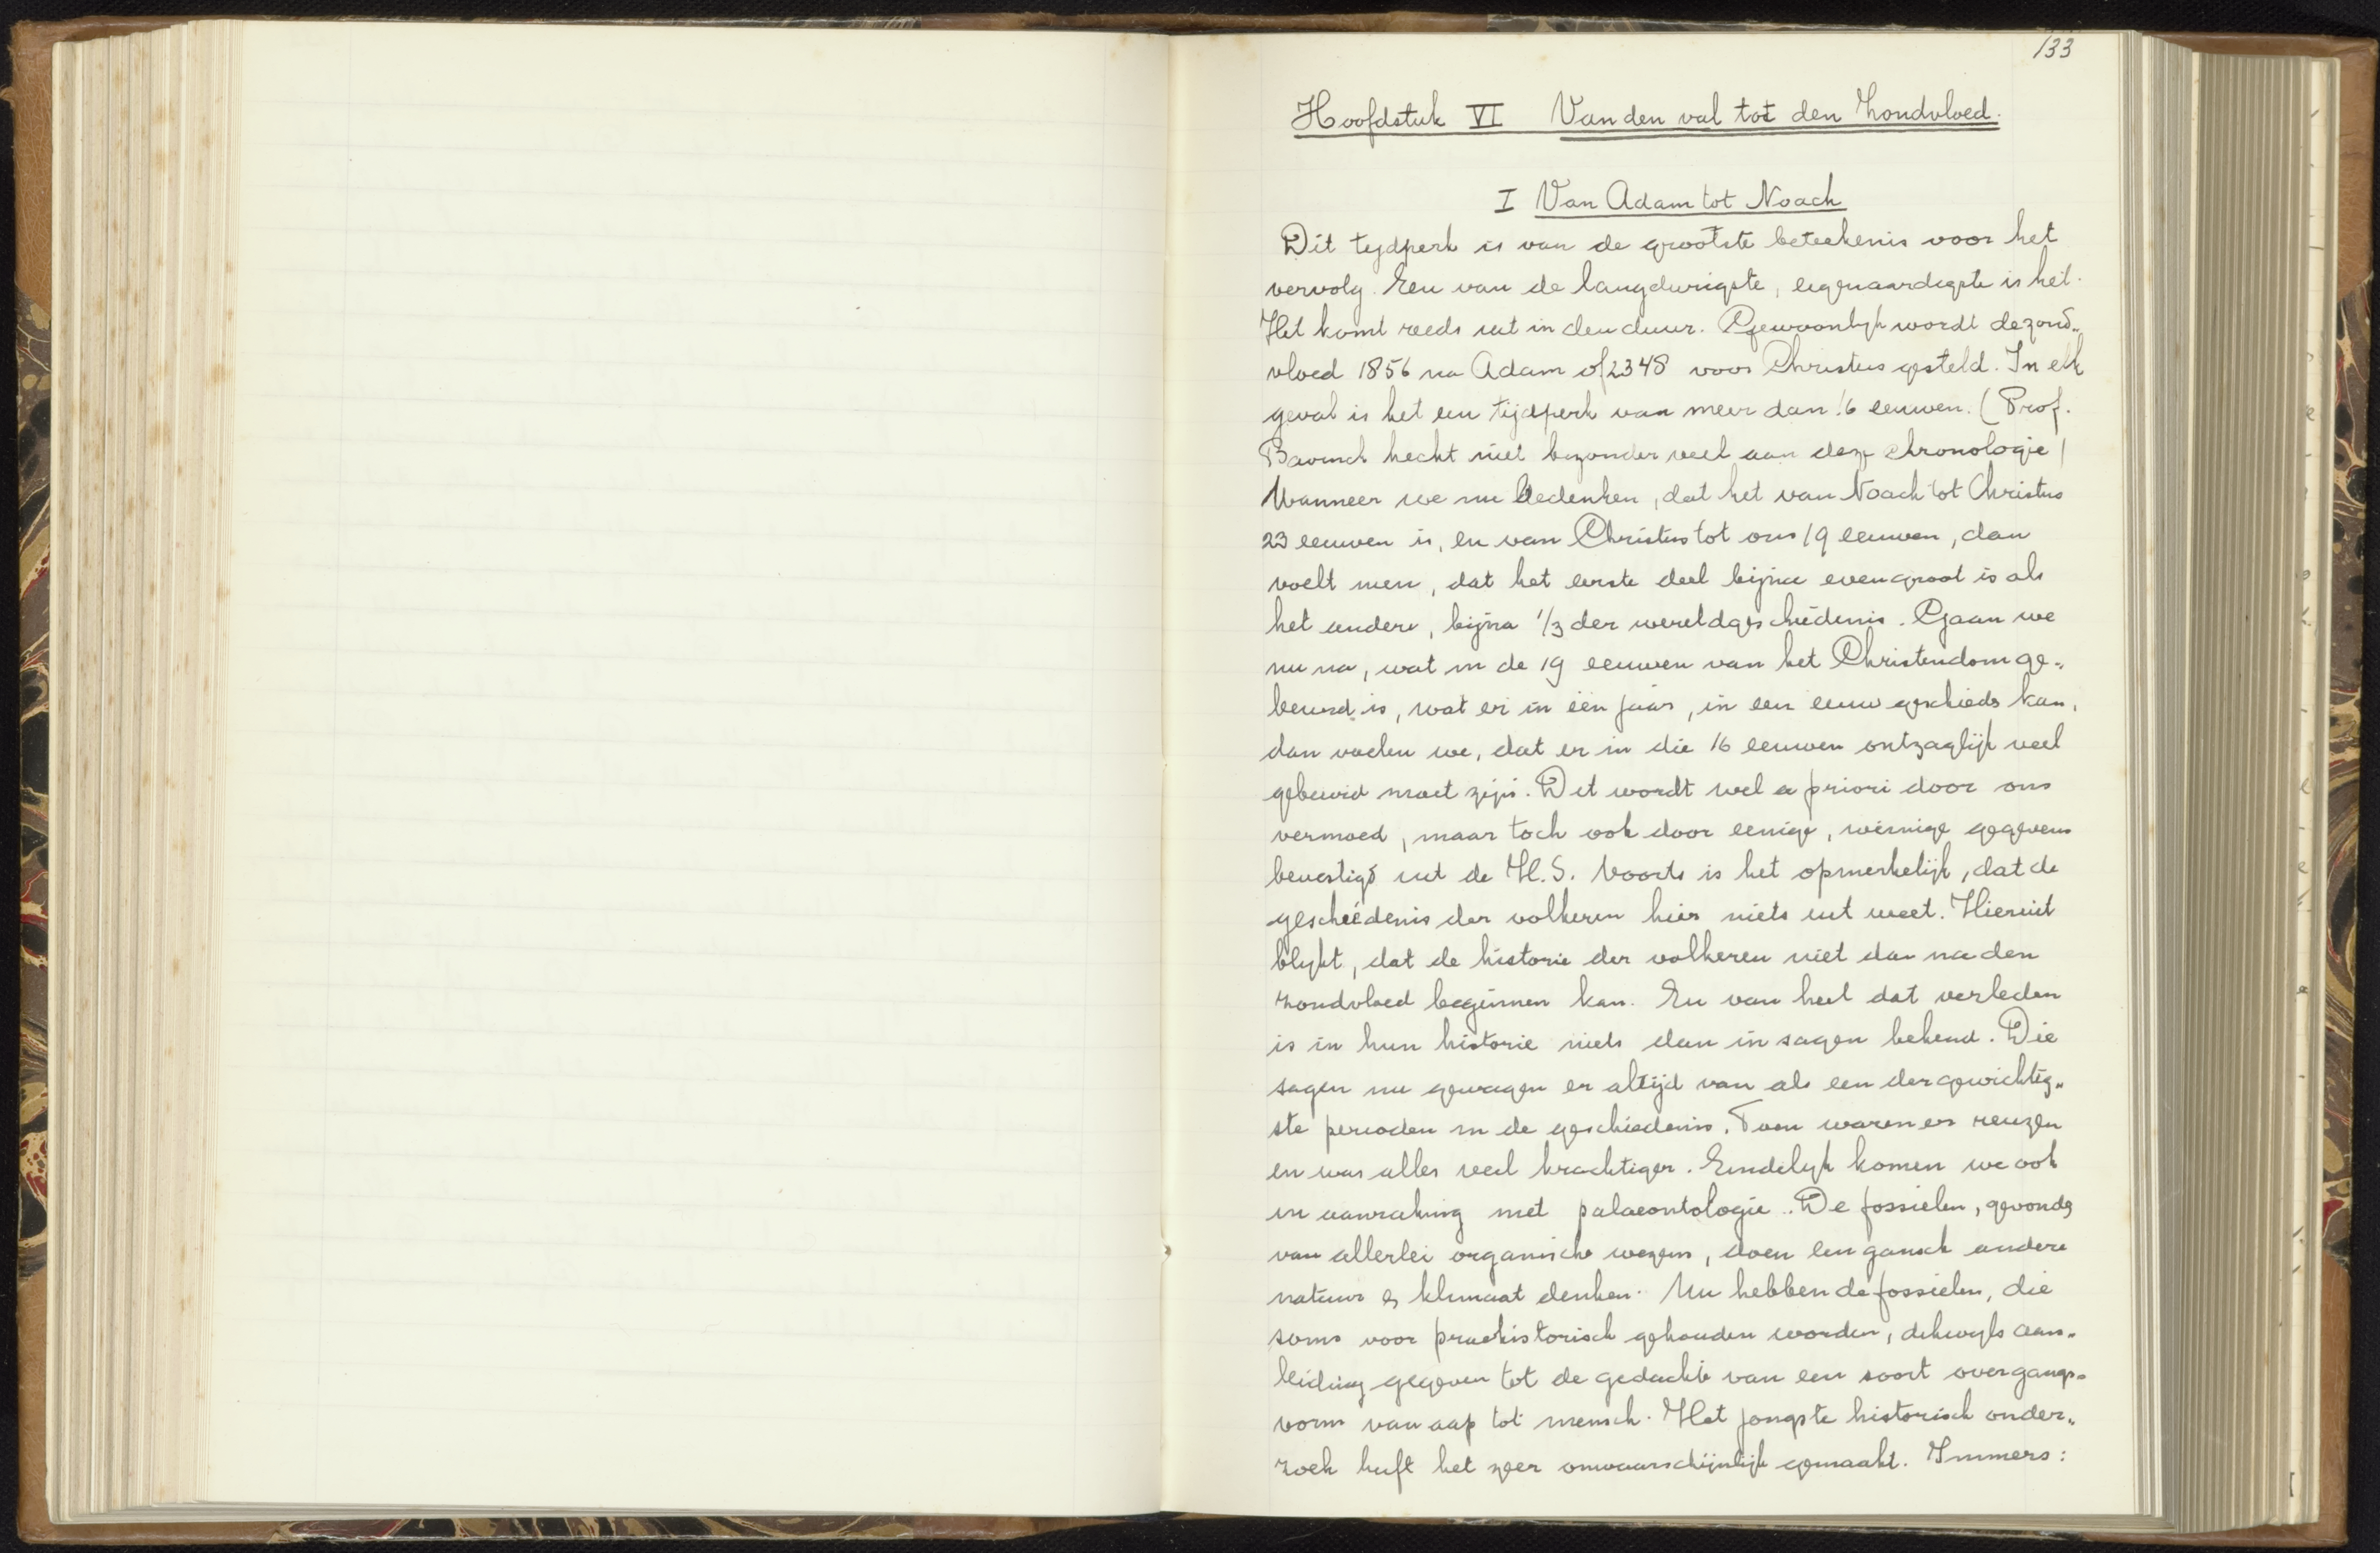 133
Hoofdstuk VI Van den val tot den Zondvloed.
I Van Adam tot Noach
Dit tydperk is van de grootste beteekenis voor het
vervolg. Een van de langdurigste, eigenaardigste is het.
Het komt reeds uit in den duur. Gewoonlyk wordt de zond„
vloed 1856 na Adam of 2348 voor Christus gesteld. In elk
geval is het een tijdperk van meer dan 16 eeuwen. (Prof.
Bavinck hecht niet bezonder veel aan deze chronologie)
Wanneer we nu bedenken, dat het van Noach tot Christus
23 eeuwen is, en van Christus tot ons 19 eeuwen, dan
voelt men, dat het eerste deel bijna even groot is als
het andere, bijna 1/3 der wereldgeschiedenis. Gaan we
nu na, wat in de 19 eeuwen van het Christendom ge„
beurd is, wat er in één jaar, in een eeuw geschieds kan,
dan voelen we, dat er in die 16 eeuwen ontzaglijk veel
gebeurd moet zijn. Dit wordt wel a priori door ons
vermoed, maar toch ook door eenige, weinige gegevens
bevestigd uit de H.S. Voorts is het opmerkelijk, dat de
geschiedenis der volkeren hier niets uit weet. Hieruit
blykt, dat de historie der volkeren niet dan na den
zondvloed beginnen kan. En van heel dat verleden
is in hun historie niets dan in sagen bekend. Die
sagen nu gewagen er altijd van als een der gewichtig„
ste perioden in de geschiedenis. Toen waren er reuzen
en was alles veel krachtiger. Eindelyk komen we ook
in aanraking met palaeontologie. De fossielen, gevonds
van allerlei organische wezens, doen een gansch andere
natuur & klimaat denken. Nu hebben de fossielen, die
soms voor praehistorisch gehouden worden, dikwyls aan„
leiding gegeven tot de gedachte van een soort overgangs„
vorm van aap tot mensch. Het jongste historisch onder„
zoek heeft het zeer onwaarschijnlijk gemaakt. Immers: